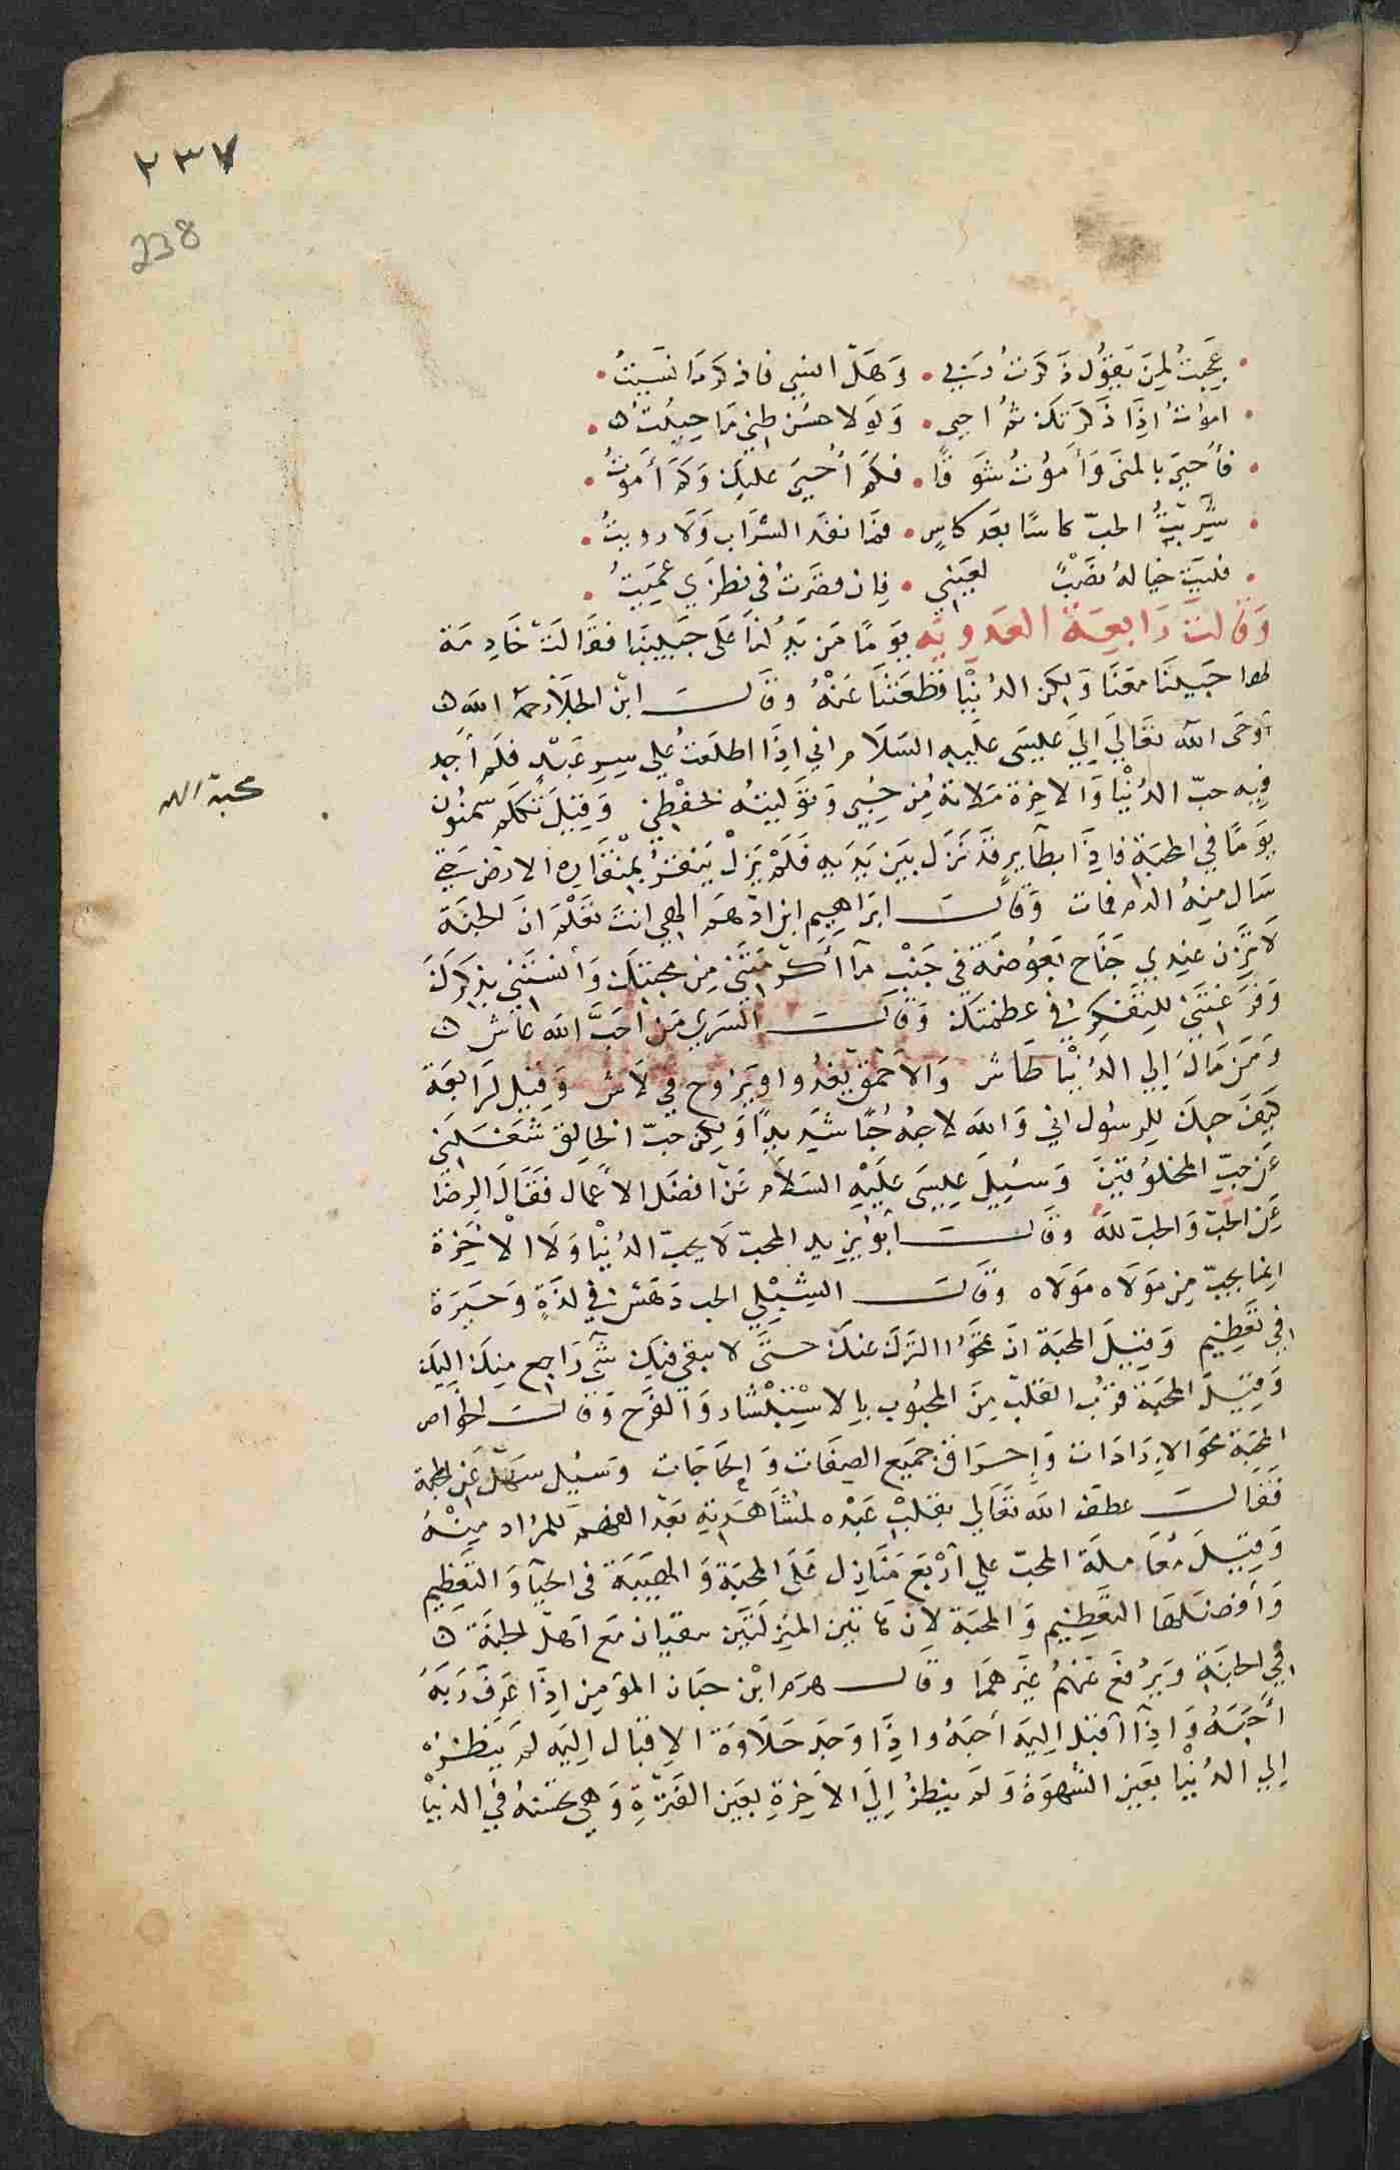 ٢٣٧
238
عَجِبْتُ لِمَنْ يَقُوْلُ ذَكَرْتُ رَبِّي • وَهَلْ انسي فاذكر مَا نَسِيتُ •
امُوْتُ اِذَا ذَكَرْتُكَ ثُمَّ احيى • وَلَولا حسُن ظني مَا حَيِيْتُ •
فَأَحْيَى بالمنَى وَأَمُوْتُ شَوقًا • فكَم أَحْيىَ عَليكَ وَكَم أَمُوتُ •
شَرِبْتُ الحبّ كاسًا بعَد كاسٍ • فمَا نفَد الشرَاب وَلَا رويتُ •
فليتَ خيالهُ نصْبٌ لعَيْني • فاِن قصَرتُ فى نظرَي عَمِيتُ •
وَقَالتْ رَابعَة العَدويَّه يوَمًا مَن يَدُلنا عَلَى حَبيبنَا فقَالَتْ خَادِمَة
لهَا حَبيبنَا مَعَنَا وَلكِن الدُنْيَا قطعَتنَا عَنْهُ وقَالَ ابْن الجلَا رَحِمَهُ اللَه
أَوحَى اللَه تعَالِى اِليَ عَليسَى عَليهِ السَلَام اني اِذَا اطلَعتُ عَلى سِرِ عَبْدٍ فلَم أَجِد
محبة الله
فِيهِ حبّ الدُنْيَا وَالاخِرَة مَلاتهُ مِن حُبِي وَتوَليتهُ بحفْظِي وَقِيْلَ تَكَلَم سمنُون
يوَمًا فِي المحَبَة فاِذَا بطَايرٍ قدْ نَزَلَ بَين يَدَيهِ فَلَمْ يَزَلْ يَنقرُ بِمنْقَارِهِ الارضَ حَتى
سَال مِنهُ الدم فمَات وَقَالَ ابرَاهِيم ابن ادْهَم الهِي انتَ تَعْلَم انَ الجَنَة
لَا تَزِن عِندِي جَنَاح بَعُوْضَة في جَنْبِ مَا أَكْرَمْتَني مِن محبتكَ وَأنسْتَنِي بذِكرَكَ
وَفرَّغتَني للِتَفَكِر في عظمتكَ وَقَالَ السَرِي مَن احَبَّ اللَه عَاش
وَمَن مَالَ اِلي الدُنْيَا طَاش وَالاَحْمَق يَغدُوا وَيَرُوح فِي لَاش وَقِيْل لرَابعَة
كيَفَ حبكَ للِرسُول اني وَاللَه لاحِبهُ حُبًا شَدِيدًا وَلكِن حبّ الخالِق شَغَلَني
عَن حبّ المخلُوقين وَسُئِلَ عِيسَى عَليْهِ السَلَام عَن افضَل الاعمَال فَقَالَ الرضَا
عَن الحبّ وَالحبّ للَه وَقَالَ أَبوُ يَزِيد المحبّ لَا يحِبّ الدُنْيَا وَلَا الْاخِرَة
اِنمَا يحِبّ مِن مَوَلَاه مَولَاه وَقَالَ الشِبْلِي الحب دَهَش فِي لذَةٍ وَحَيرَة
فِي تعَظِيم وَقِيلَ المحَبَة ان تمحَو اثرَكَ عنكَ حَتَى لا يبقى فِيكَ شَي رَاجع مِنكَ اِليكَ
وَقِيلَ المحَبَة قربُ القَلبْ مِنَ المحَبُوب باِلاسْتِبْشَار وَالفَرَح وَقَالَ الخوَاص
المحَبَة محَو الاِرَادَات وَاحرَاق جَميَع الصِفَات وَالحَاجَات وَسُئِل سَهْل عَن المحَبة
فَقَالَ عطفَ اللَه تعَالِى بقلبْ عَبْدِه لمُشَاهَدَتِهِ بَعْد الفهم للمُرَاد مِنْهُ
وَقِيْلَ مُعَامَلَة المحبّ عَلي أَرْبَع مَنَازِل عَلَى المحَبَة وَالهَيبَة فى الحيَا وَالتعَظيم
وَافضلهَا التعَظِيم وَالمحَبَة لاِن هَاتَين المنِزلَتَين يبقيَان مَع اَهْل الجَنَة
فِي الجنَة وَيرُفعَ عَنْهُم غيَرهمَا وقَالَ هرم ابْن حَيَان المؤمِن اِذَا عَرفَ رَبَهُ
أَحَبَهُ وَاِذَا اقبَل اِليَهِ احَبهُ واذَا وَجَد حَلَاوَة الاِقبَال اِليَه لَم يَنظرْ
اِلي الدُنْيَا بعَينِ الشهَوَة وَلَم يَنظرُ اِلَى الاخِرَةِ بعَين الفَتْرَةِ وَهِي تحسرهُ فِي الدنيْا